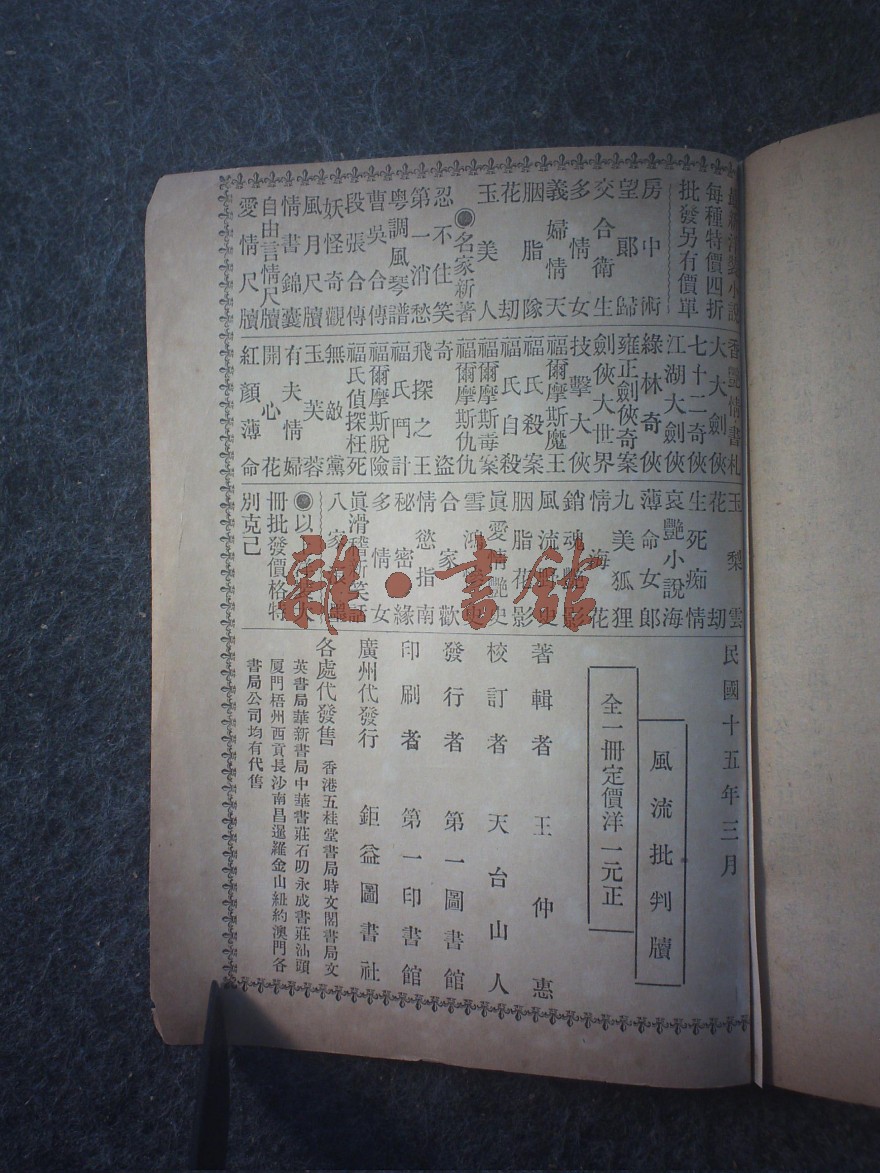 每種特價四折
批發另有價單
房中術
望郎歸
交合衛生
多情女
義婦情天
胭脂隊
花劫
玉美人
●名家新著
忍不住笑
第一消愁
粵調風琴譜
曹吳合傳
段張合傳
妖怪奇觀
風月尺牘
情書錦囊
自由言情尺牘
愛情尺牘
香艷情書札
大大劍俠
七十二奇俠
江湖大劍俠
綠林奇俠
雍正劍俠奇案
劍俠大世界
技擊大俠
福爾摩斯魔王
福氏殺案
福氏自殺
福爾摩斯毒案
福爾摩斯仇仇
奇盜
飛探之王
福氏鬥計
福爾摩斯脫險
福氏偵探枉死
無敵黨
玉芙蓉
有夫情婦
開心花
紅顏薄命
玉梨雲
花劫
生死痴情
哀艷小說海
薄命女郎
九美狐狸
情海花
銷魂艷影
風流艷史
胭脂花影
真愛情艷史
雪鴻
合家歡
情慾指南
秘密緣
多情女
真滑稽笑話
八家
●以
冊批發價格特
別克己
民國十五年三月
風流批判牘
全一冊定價洋一元正
著輯者 王仲惠
校訂者 天台山人
發行者 第一圖書館
印刷者 第一印書館
廣州代發行 鉅益圖書社
各處代發售 香港五桂堂書局時文閣書局文
英書局華新書局中華書莊石叻永成書莊汕頭
厦門梧州西貢長沙南昌暹羅金山紐約澳門各
書局公司均有代售
雜·書館